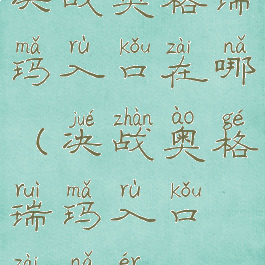 决战奥格瑞
mǎ rù kǒu zài nǎ
玛入口在哪
jué zhàn ào gé
（决战奥格
ruì mǎ rù kǒu
瑞玛入口
zài nǎ ér